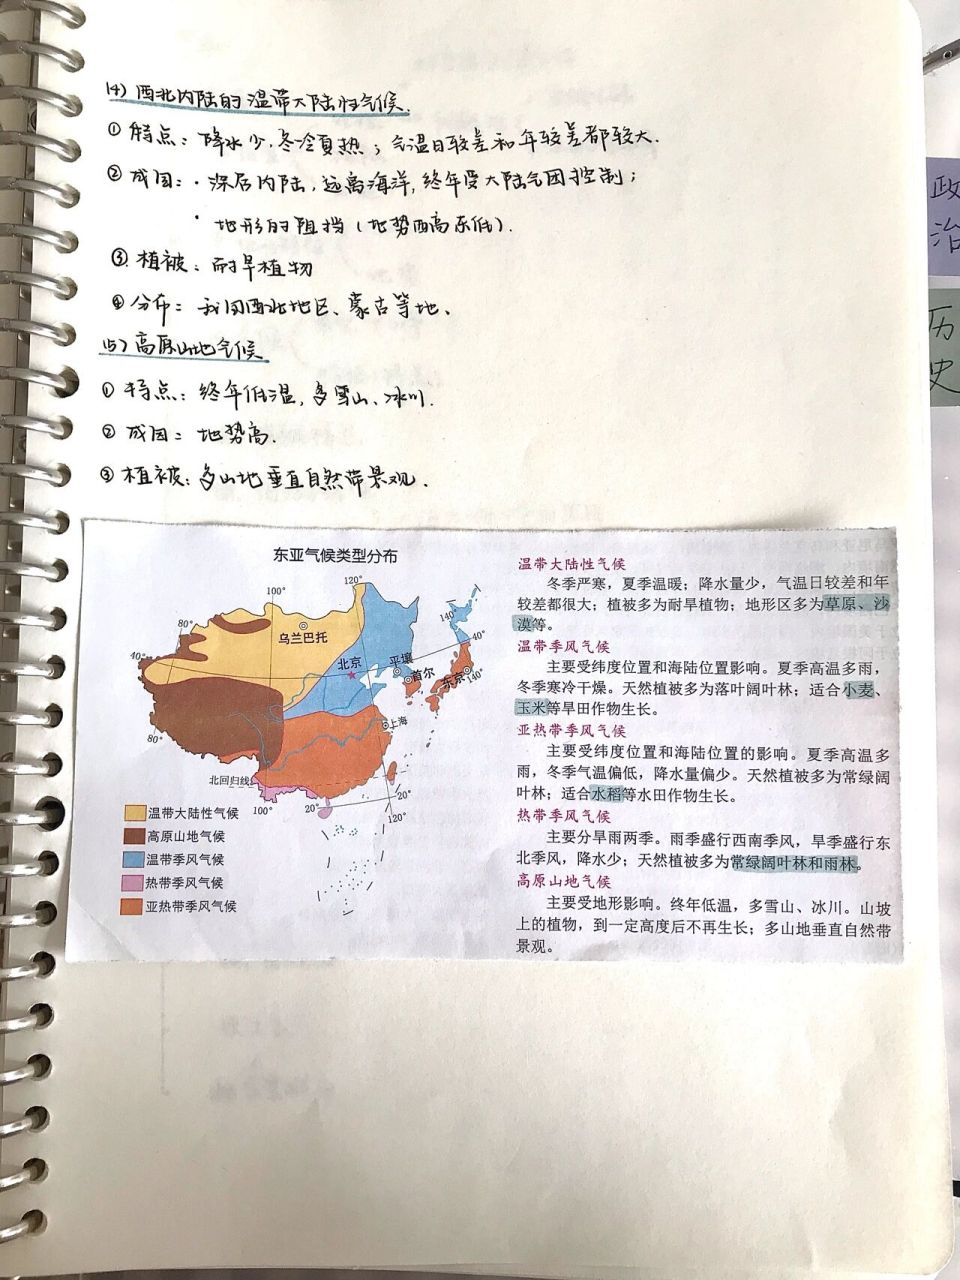 (4) 西北内陆的温带大陆性气候.
① 特点：降水少,冬冷夏热；气温日较差和年较差都较大.
② 成因：· 深居内陆,远离海洋,终年受大陆气团控制；
· 地形的阻挡(地势西高东低).
③ 植被：耐旱植物
④ 分布：我国西北地区、蒙古等地、
(5) 高原山地气候
① 特点：终年低温,多雪山、冰川.
② 成因：地势高.
③ 植被：多山地垂直自然带景观.
政治
历史
东亚气候类型分布
80°
100°
120°
140°
40°
40°
乌兰巴托
北京
平壤
首尔
东京
140°
80°
上海
北回归线
100°
20°
20°
120°
温带大陆性气候
高原山地气候
温带季风气候
热带季风气候
亚热带季风气候
温带大陆性气候
冬季严寒，夏季温暖；降水量少，气温日较差和年
较差都很大；植被多为耐旱植物；地形区多为草原、沙
漠等。
温带季风气候
主要受纬度位置和海陆位置影响。夏季高温多雨，
冬季寒冷干燥。天然植被多为落叶阔叶林；适合小麦、
玉米等旱田作物生长。
亚热带季风气候
主要受纬度位置和海陆位置的影响。夏季高温多
雨，冬季气温偏低，降水量偏少。天然植被多为常绿阔
叶林；适合水稻等水田作物生长。
热带季风气候
主要分旱雨两季。雨季盛行西南季风，旱季盛行东
北季风，降水少；天然植被多为常绿阔叶林和雨林。
高原山地气候
主要受地形影响。终年低温，多雪山、冰川。山坡
上的植物，到一定高度后不再生长；多山地垂直自然带
景观。